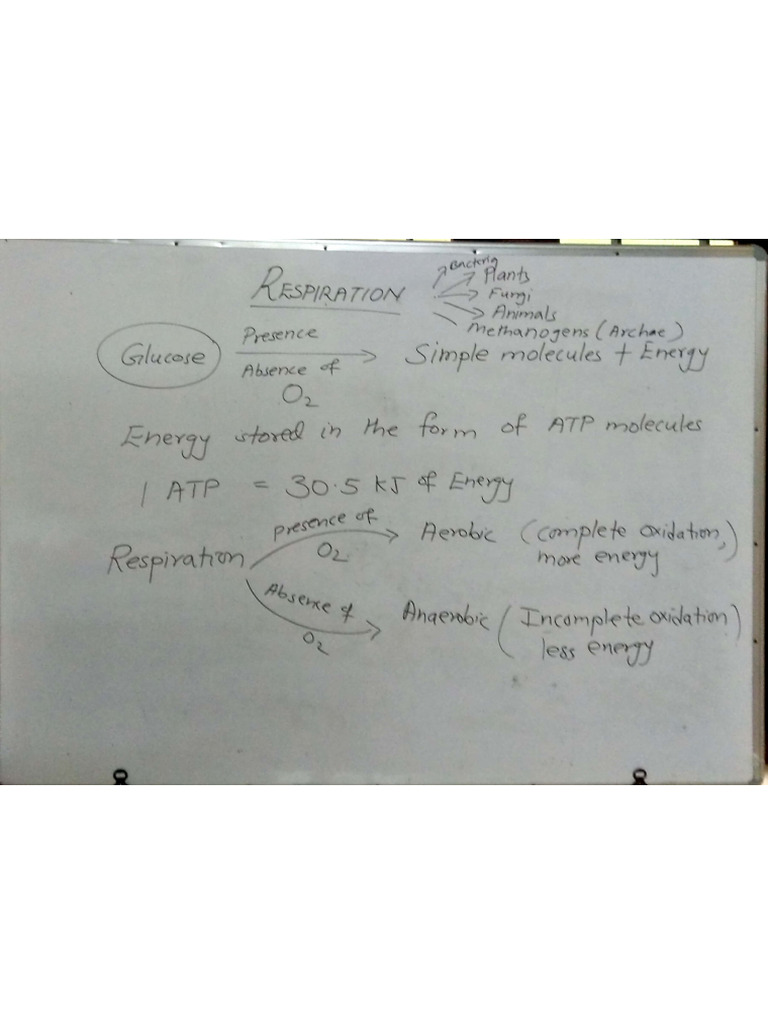 RESPIRATION
Bacteria
Plants
Fungi
Animals
Methanogens (Archae)
Glucose Presence Absence of O2 Simple molecules + Energy
Energy stored in the form of ATP molecules
1 ATP = 30.5 KJ of Energy
Respiration
presence of O2 Aerobic (complete oxidation,
more energy)
Absence of O2 Anaerobic (Incomplete oxidation)
less energy